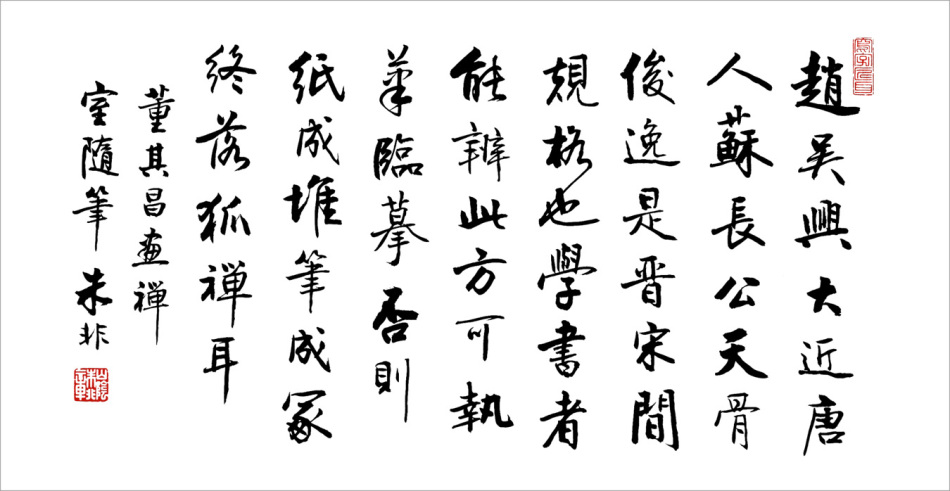 趙吳興大近唐
人蘇長公天骨
俊逸是晋宋間
規格也學書者
能辨此方可執
筆臨摹否則
紙成堆筆成冢
終落狐禅耳
董其昌畫禅
室隨筆朱非